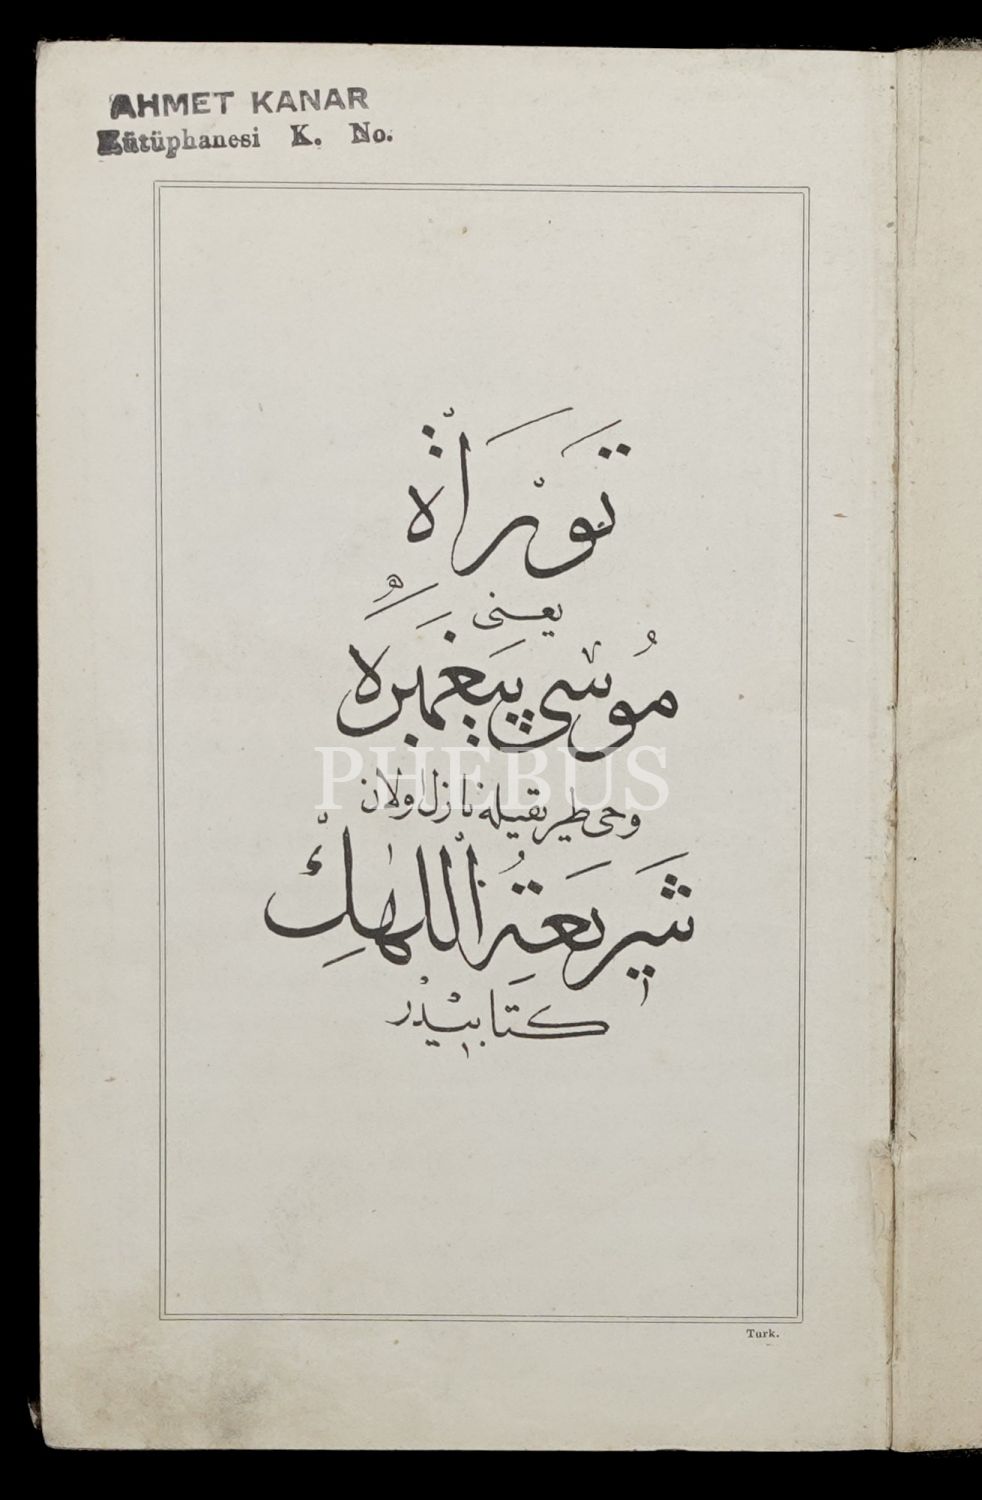 AHMET KANAR
Kütüphanesi K. No.
تَوْرَاةْ
يعنى
مُوسٰى پيَغمبَرَه
PHEBUS
وحى طريقيله نازل اولان
شَريعَتُ اللهِڭ
كتَابيدر
Turk.